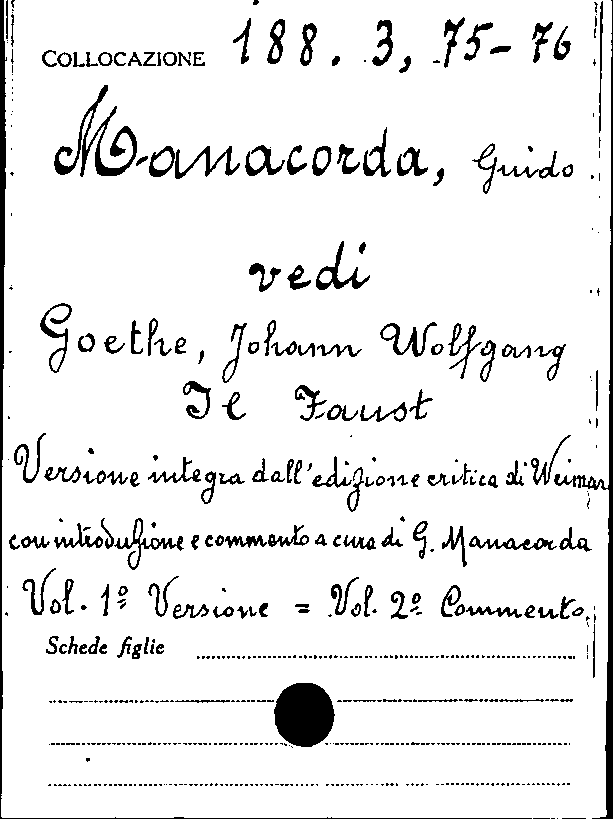 COLLOCAZIONE 188. 3, 75-76
Manacorda, Guido
vedi
Goethe, Johann Wolfgang
Il Faust
Versione integra dall'edizione critica di Weimar
con introduzione e commento a cura di G. Manacorda
Vol. 1º Versione = Vol. 2º Commento.
Schede figlie